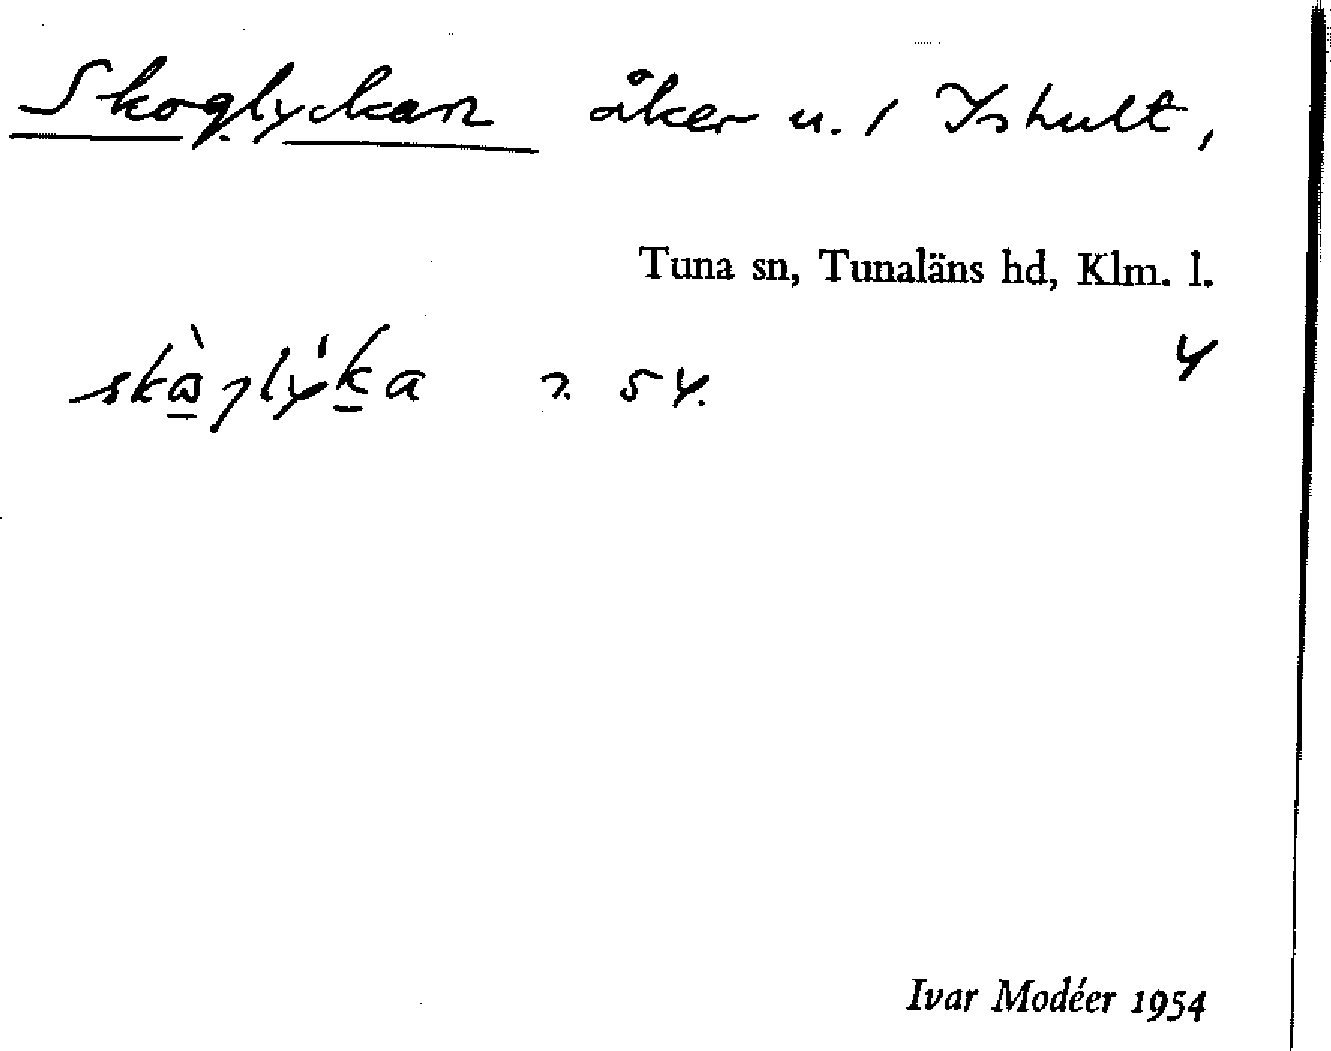 Skoglyckan åker u. 1 Ishult,
Tuna sn, Tunaläns hd, Klm. l.
4
54.
Ivar Modéer 1954